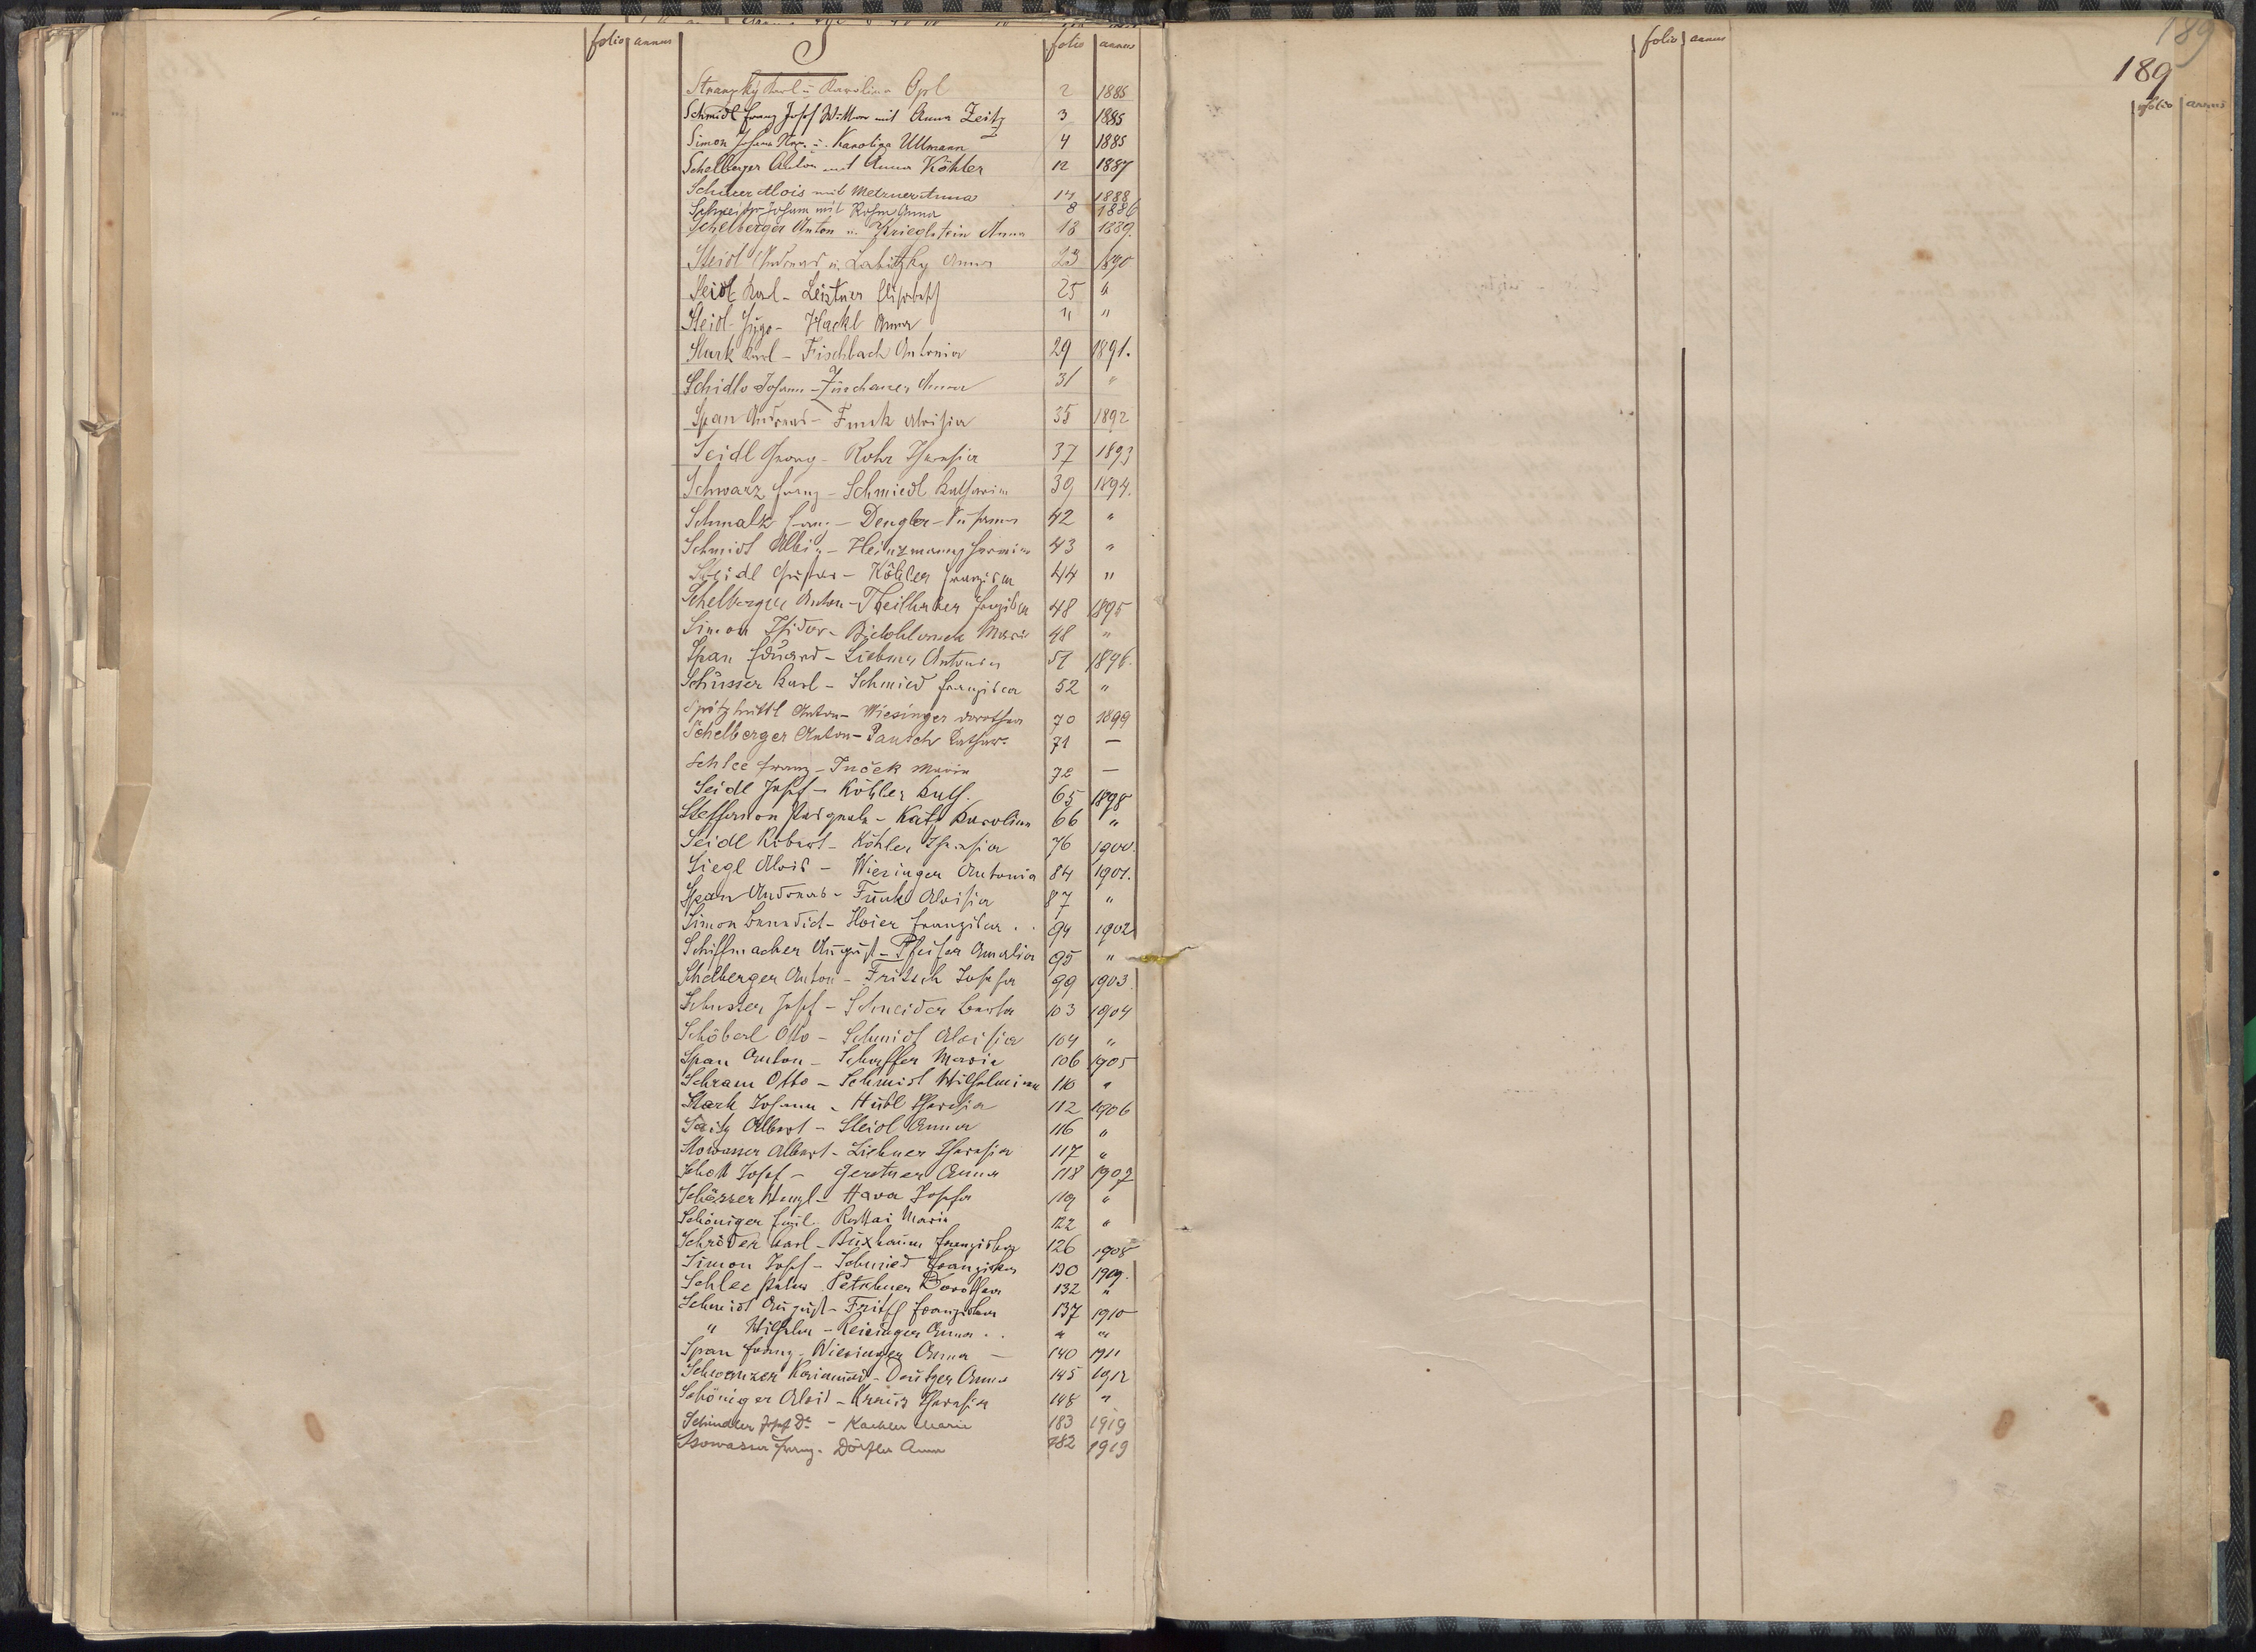 folio annus
S
folio annus
folio annus
189
189
folio annus
Stransky Karl u Karolina Opl 2 1885
Schmidl Franz Josef Wittwer mit Anna Zeitz 3 1885
Simon Johann u. Karolina Ullmann 4 1885
Schelberger Anton mit Anna Köhler 12 1887
Alois mit Metzner Anna 14 1888
Johann mit Anna 8 1886
Schelberger Anton u. Krieglstein Anna 18 1889.
Steidl Andreas u. Labitzky Anna 23 1890
Seidl Karl - Leistner Elisabeth 25 "
Steidl Hugo - Hackl Anna " "
Stark Karl - Fischbach Antonia 29 1891.
Schidlo Johann - Anna 31 "
Span Andreas - Funk Aloisia 35 1892
Seidl Georg - Rohr Theresia 37 1893
Schwarz Franz - Schmiedl Katharina 39 1894.
Schmalz Franz - Dengler - Susanna 42 "
Schmidt Albin - Heinzmann Hermine 43 "
Seidl Gustav - Köhler Franziska 44 "
Schelberger Anton - Theilhaker Franziska 48 1895
Simon Isidor - Maria 48 "
Span Eduard - Liebner Antonia 51 1896.
Schüsser Karl - Schmied Franziska 52 "
Spitzhüttl Anton - Wiesinger Dorothea 70 1899
Schelberger Anton - Pausch Kathar. 71 —
Schlee Franz - Maria 72 —
Seidl Josef - Köhler Kath. 65 1898
Steffanon Pasquale - Karolina 66 "
Seidl Robert - Köhler Theresia 76 1900.
Siegl Alois - Wiesinger Antonia 84 1901.
Span Andreas - Funk Aloisia 87 "
Simon Benedict - Hoier Franziska . . 94 1902
Schiffmacher August - Pfeifer Amalia 95 "
Schelberger Anton - Fritsch Josefa 99 1903.
Schuster Josef - Schneider Berta 103 1904
Schöberl Otto - Schmidt Aloisia 104 "
Span Anton - Schaffer Maria 106 1905
Schram Otto - Schmidt Wilhelmine 110 "
Stark Johann - Hübl Theresia 112 1906
Albert - Steidl Anna 116 "
Stowasser Albert - Liebner Theresia 117 "
Schott Josef - Gerstner Anna 118 1907
Schösser Wenzl - Hava Josefa 119 "
Schöniger Emil - Maria 122 "
Schröder Karl - Buxbaum Franziska 126 1908
Simon Josef - Schmied Franziska 130 1909.
Schlee Petschner Dorothea 132 "
Schmidt August - Fritsch Franziska 137 1910
" Wilhelm - Reisinger Anna . . " "
Span Franz - Wiesinger Anna — 140 1911
Schwanzer - Anna 145 1912
Schöniger Alois - Kraus Theresia 148 "
Schindler Josef Dr. - Kachler Marie 183 1919
Stowasser Franz - Dörfler Anna 182 1919